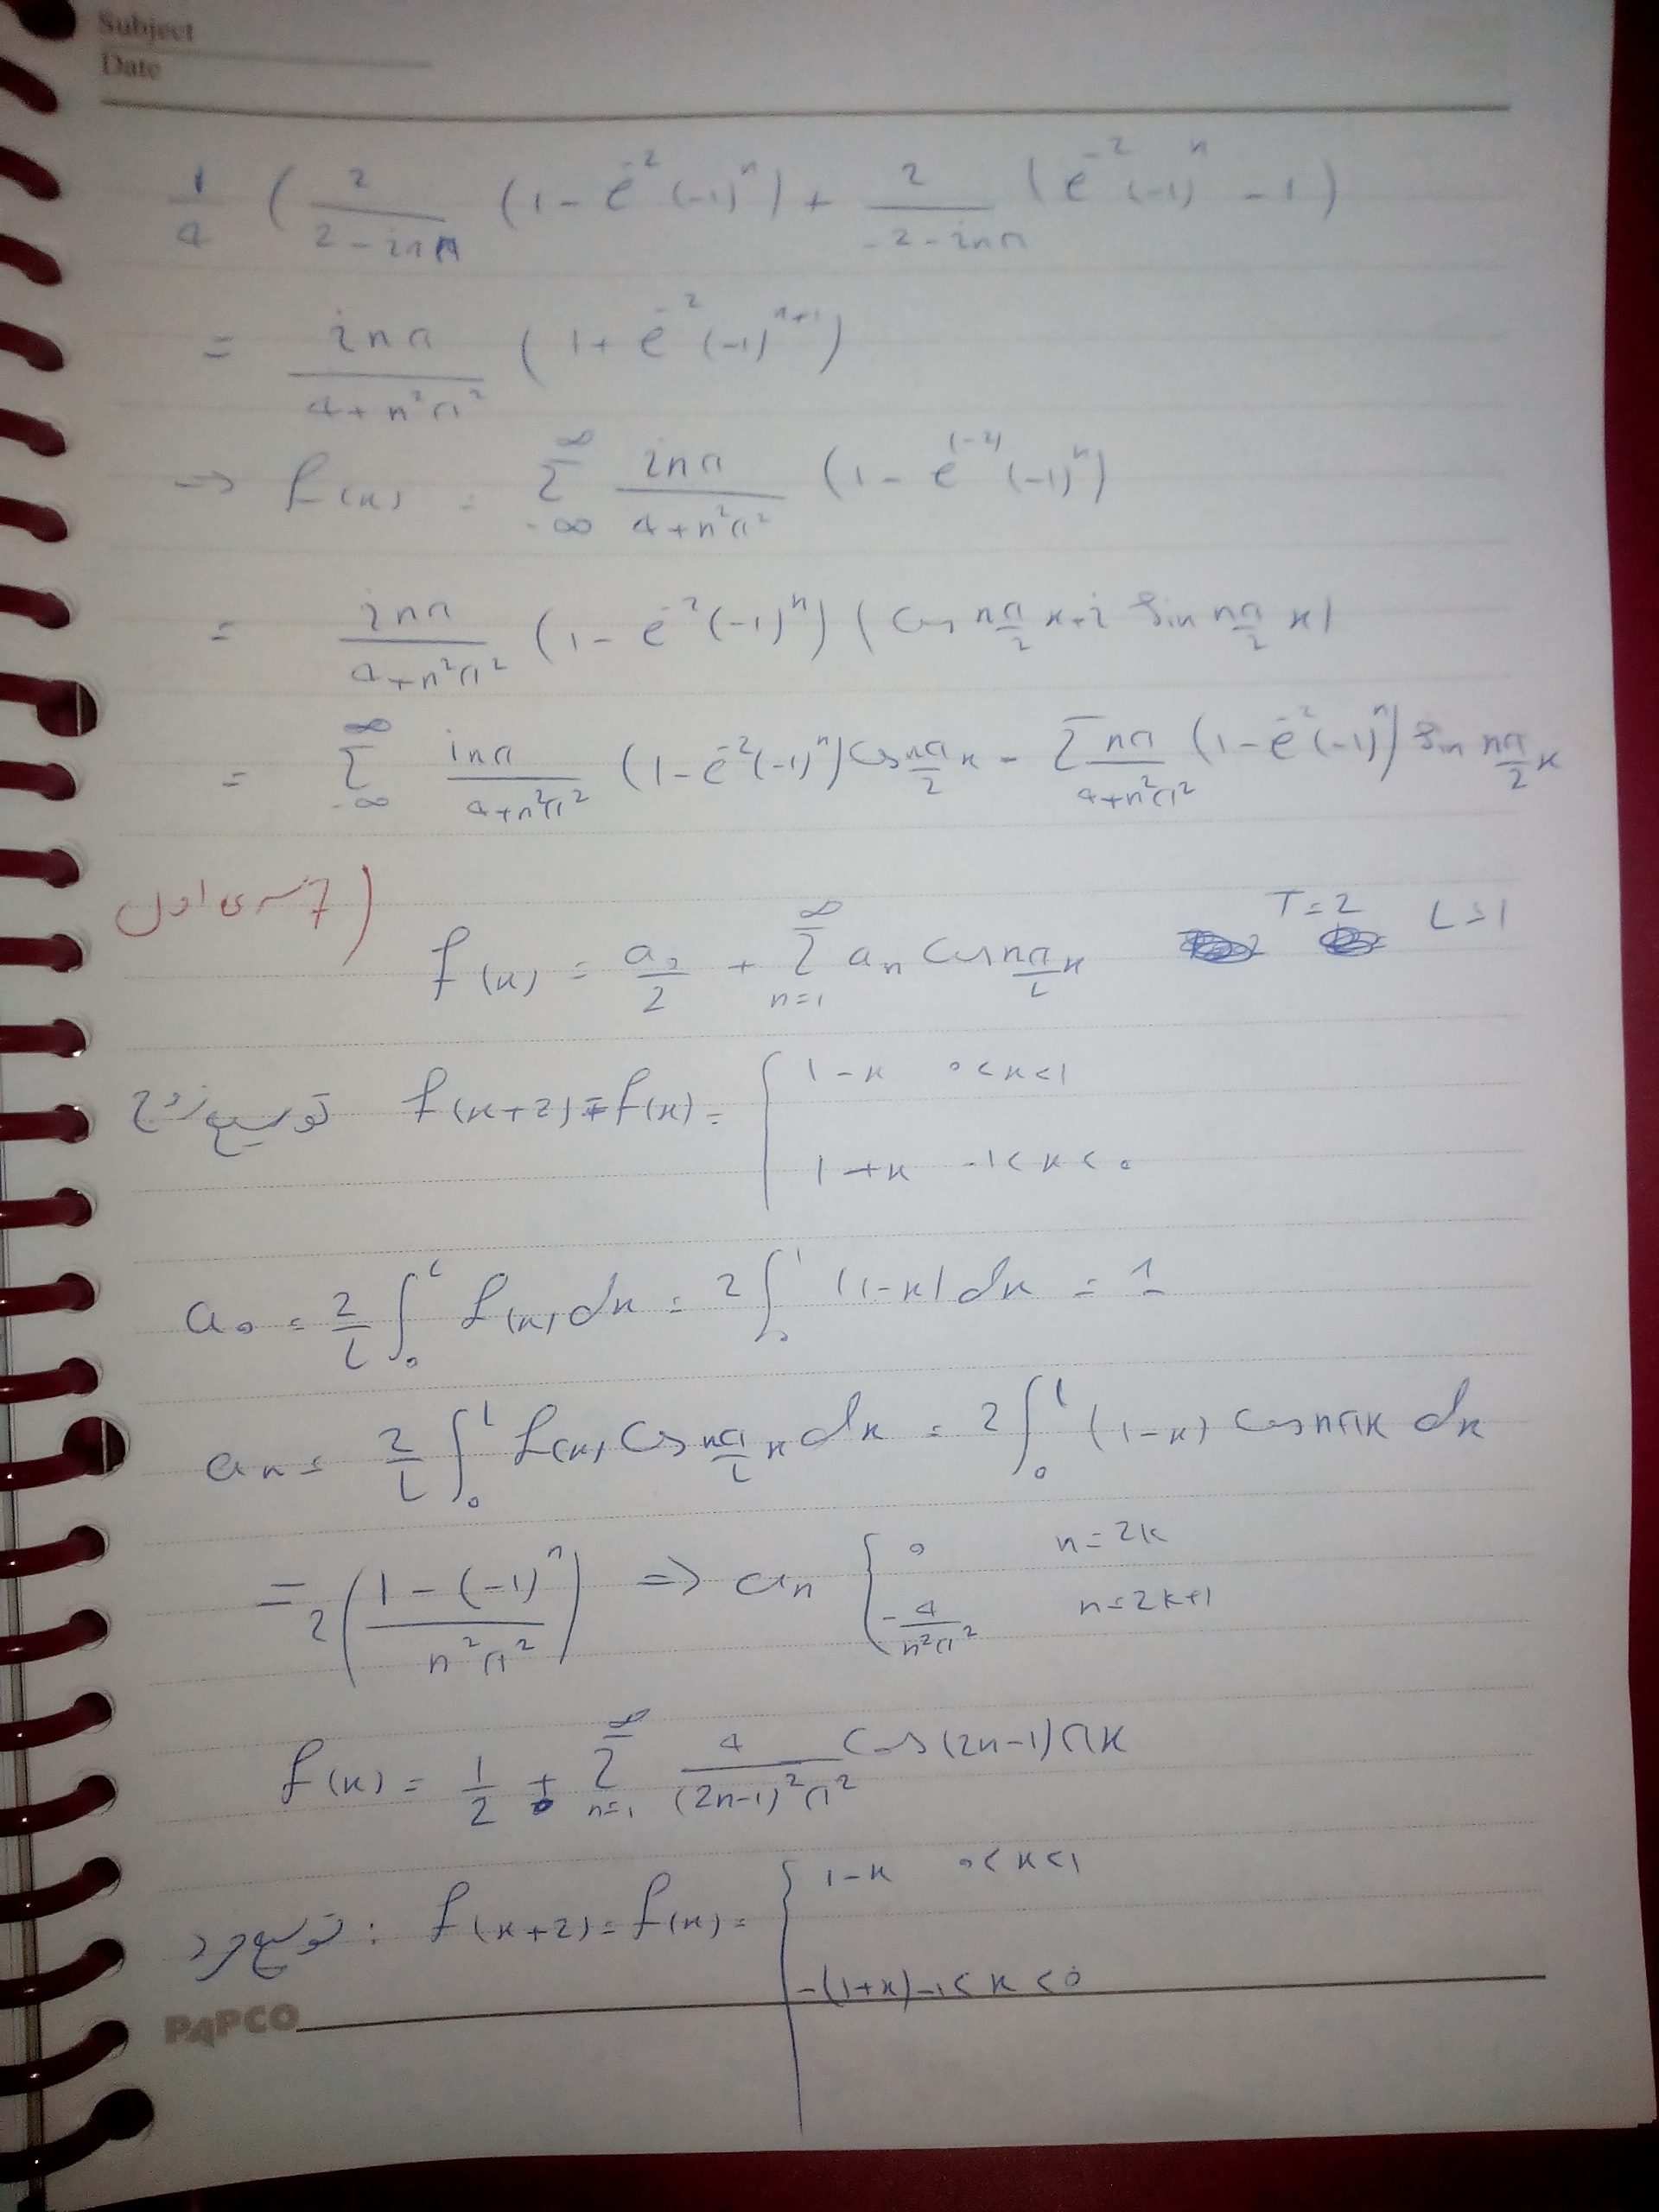 Subject
Date
1/4 ( 2/(2-inπ) (1-e^-2 (-1)^n) + 2/(-2-inπ) (e^-2 (-1)^n -1)
= inπ/(4+n²π²) (1+e^-2 (-1)^(n+1))
=> f(x) = Σ_{-∞}^{∞} inπ/(4+n²π²) (1-e^(-2) (-1)^n)
= inπ/(4+n²π²) (1-e^-2 (-1)^n) (Cos nπ/2 x + i Sin nπ/2 x)
= Σ_{-∞}^{∞} inπ/(4+n²π²) (1-e^-2 (-1)^n) Cos nπ/2 x - Σ nπ/(4+n²π²) (1-e^-2 (-1)^n) Sin nπ/2 x
7 سری اول)
f(x) = a₀/2 + Σ_{n=1}^{∞} aₙ Cos nπ/L x T=2 L=1
توسیع زوج f(x+2) = f(x) = { 1-x 0<x<1
1+x -1<x<0
a₀ = 2/L ∫_0^L f(x) dx = 2 ∫_0^1 (1-x) dx = 1
aₙ = 2/L ∫_0^L f(x) Cos nπ/L x dx = 2 ∫_0^1 (1-x) Cos nπx dx
= 2 ( (1-(-1)^n)/(n²π²) ) => aₙ { 0 n=2k
-4/(n²π²) n=2k+1
f(x) = 1/2 + Σ_{n=1}^{∞} 4/((2n-1)²π²) Cos(2n-1)πx
توسیع فرد : f(x+2) = f(x) = { 1-x 0<x<1
-(1+x) -1<x<0
PAPCO